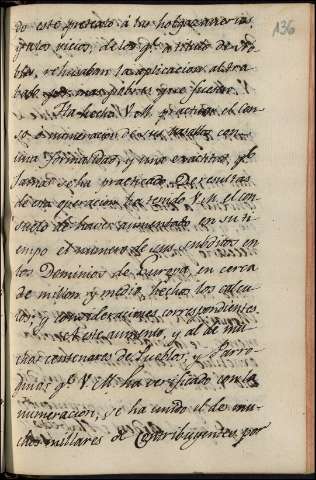 136
do este pretexto á las holgazanerias
y a los vicios, de los qe. á titulo de no
bles, rehusaban la aplicacion al tra
bajo por mas pobres que fuesen.
Ha hecho V. M. practicar el cen
so ó numeracion de sus vasallos con
una formalidad, y una exactitud, qe.
jamas se ha practicado. De resultas
de esta operacion ha tenido V. M. el con
suelo de haver aumentado en su ti
empo el numero de sus subditos en
los Dominios de Europa en cerca
de millon y medio, hechos los calcu
los, y moderaciones correspondientes.
A este aumento, y al de mu
chos centenares de Pueblos, y Parro
quias, qe. V. M. ha verificado con la
numeracion, se ha unido el de mu
chos millares de Contribuyentes por